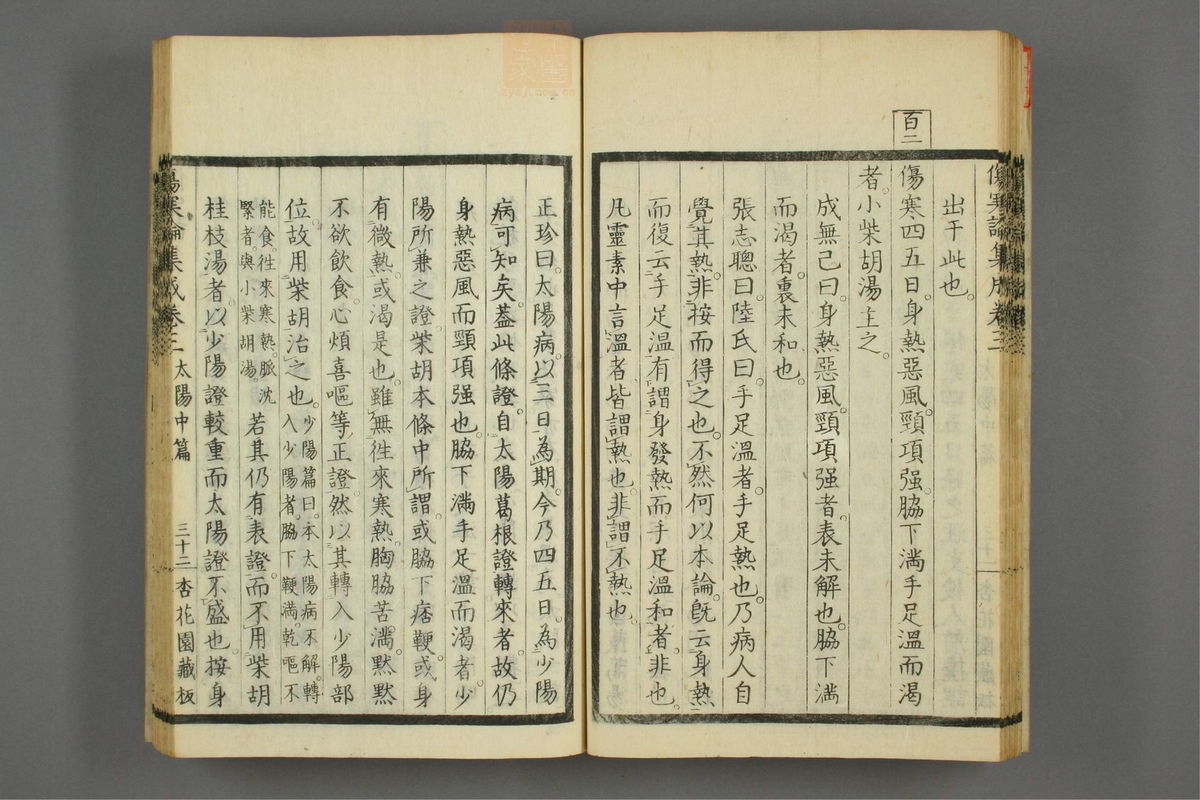 傷寒論集成卷三
出于此也。
百二
傷寒四五日。身熱惡風。頸項强。脇下滿。手足溫而渴
者。小柴胡湯主之。
成無己曰。身熱惡風。頸項强者。表未解也。脇下滿
而渴者。裏未和也。
張志聰曰。陸氏曰。手足溫者。手足熱也。乃病人自
覺其熱。非按而得之也。不然何以本論既云身熱
而復云手足溫。有謂身發熱而手足溫和者。非也。
凡靈素中言溫者。皆謂熱也。非謂不熱也。
正珍曰。太陽病。以三日為期。今乃四五日。為少陽
病可知矣。蓋此條證。自太陽葛根證轉來者。故仍
身熱惡風而頸項强也。脇下滿手足溫而渴者。少
陽所兼之證。柴胡本條中所謂或脇下痞鞕。或身
有微熱。或渴是也。雖無徃來寒熱。胸脇苦滿。默默
不欲飲食。心煩喜嘔等正證。然以其轉入少陽部
位。故用柴胡治之也。少陽篇曰。本太陽病不解。轉入少陽者。脇下鞕滿。乾嘔不
能食。徃來寒熱。脈沈緊者。與小柴胡湯。若其仍有表證。而不用柴胡
桂枝湯者。以少陽證較重而太陽證不盛也。按身
傷寒論集成卷三 太陽中篇 三十二 杏花園藏板